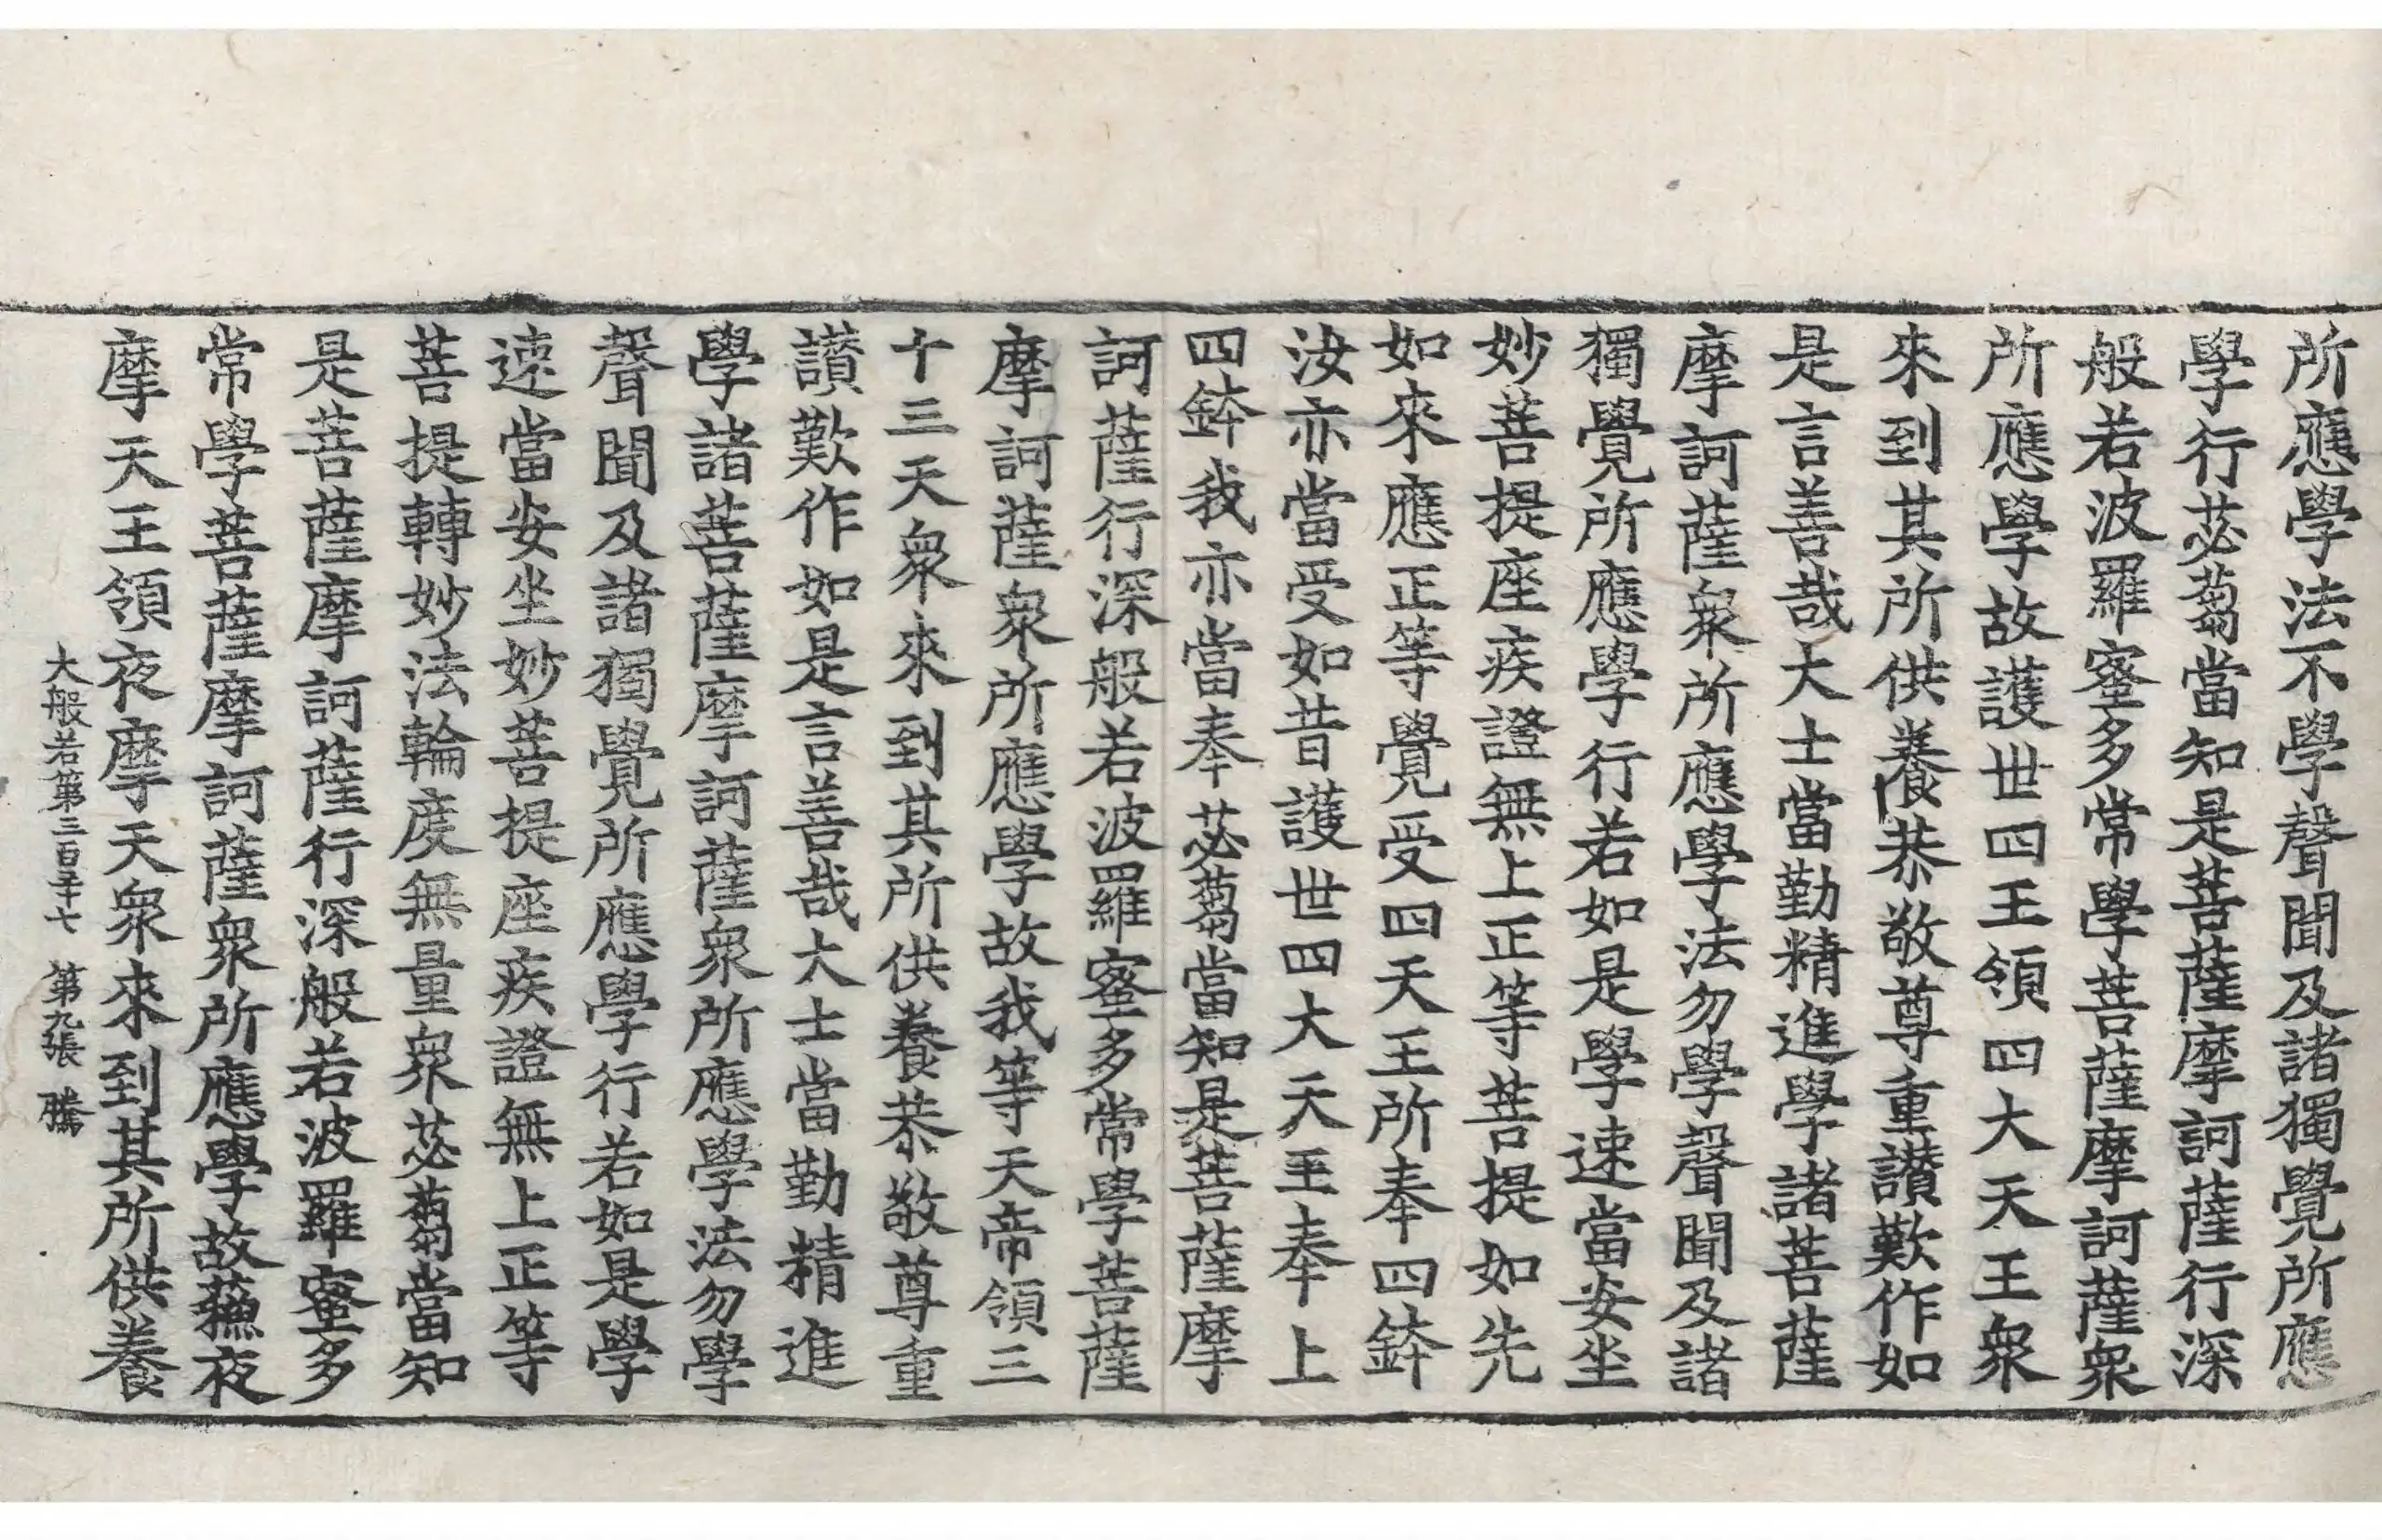 所應學法不學聲聞及諸獨覺所應
學行苾蒭當知是菩薩摩訶薩行深
般若波羅蜜多常學菩薩摩訶薩衆
所應學故護世四王領四大天王衆
來到其所供養恭敬尊重讃歎作如
是言善哉大士當勤精進學諸菩薩
摩訶薩衆所應學法勿學聲聞及諸
獨覺所應學行若如是學速當安坐
妙菩提座疾證無上正等菩提如先
如來應正等覺受四天王所奉四鉢
汝亦當受如昔護世四大天王奉上
四鉢我亦當奉苾蒭當知是菩薩摩
訶薩行深般若波羅蜜多常學菩薩
摩訶薩衆所應學故我等天帝領三
十三天衆來到其所供養恭敬尊重
讃歎作如是言善哉大士當勤精進
學諸菩薩摩訶薩衆所應學法勿學
聲聞及諸獨覺所應學行若如是學
速當安坐妙菩提座疾證無上正等
菩提轉妙法輪度無量衆苾蒭當知
是菩薩摩訶薩行深般若波羅蜜多
常學菩薩摩訶薩衆所應學故蘓夜
摩天王領夜摩天衆來到其所供養
大般若第三百卅七 第九張 騰